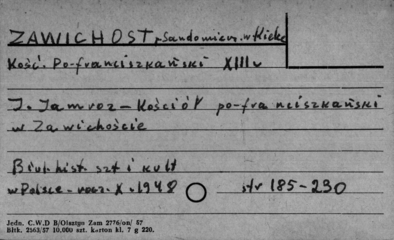 ZAWICHOST p. Sandomierz. w Kielc
Kość. Po-franciszkański XIII w
J. Jamroz – Kościół po-franciszkański
w Zawichoście
Biul. hist. szt i kult
w Polsce – rocz. X – 1948 str 185–230
Jedn. C.W.D B/Olsztyn Zam 2776/on/ 57
Bltk. 2563/57 10.000 szt. karton kl. 7 g 220.